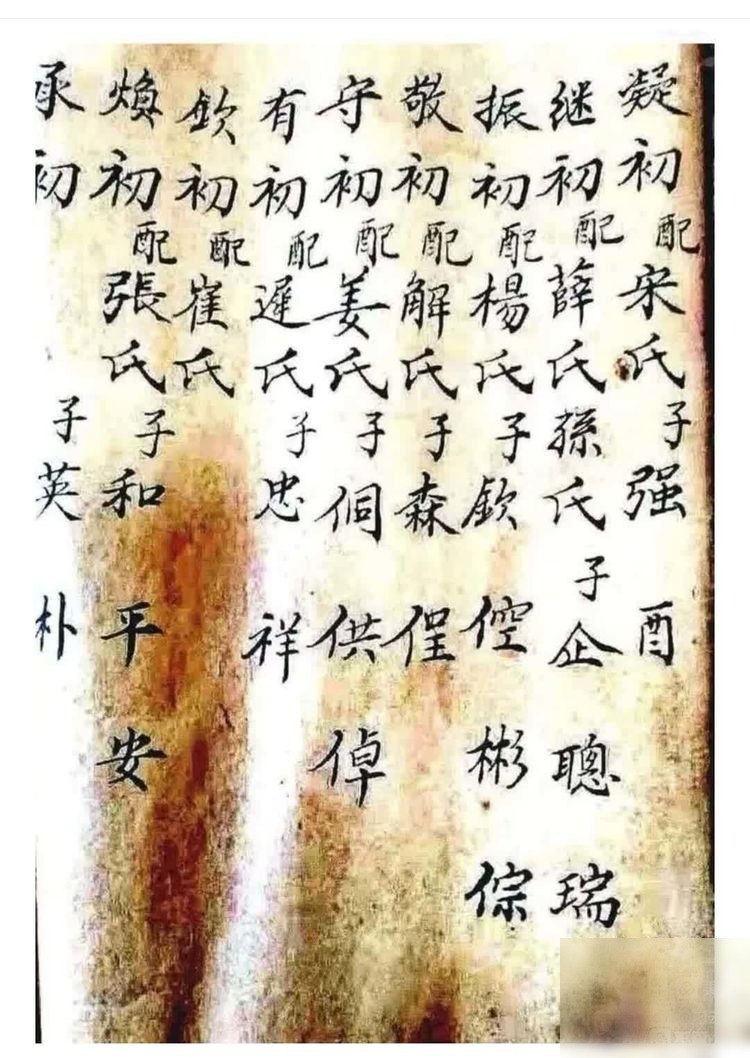 凝初配宋氏子强酉
继初配薛氏孫氏子企聰瑞
振初配楊氏子欽倥彬倧
敬初配解氏子森侱
守初配姜氏子侗供倬
有初配遲氏子忠祥
欽初配崔氏
煥初配張氏子和平安
承初子英朴